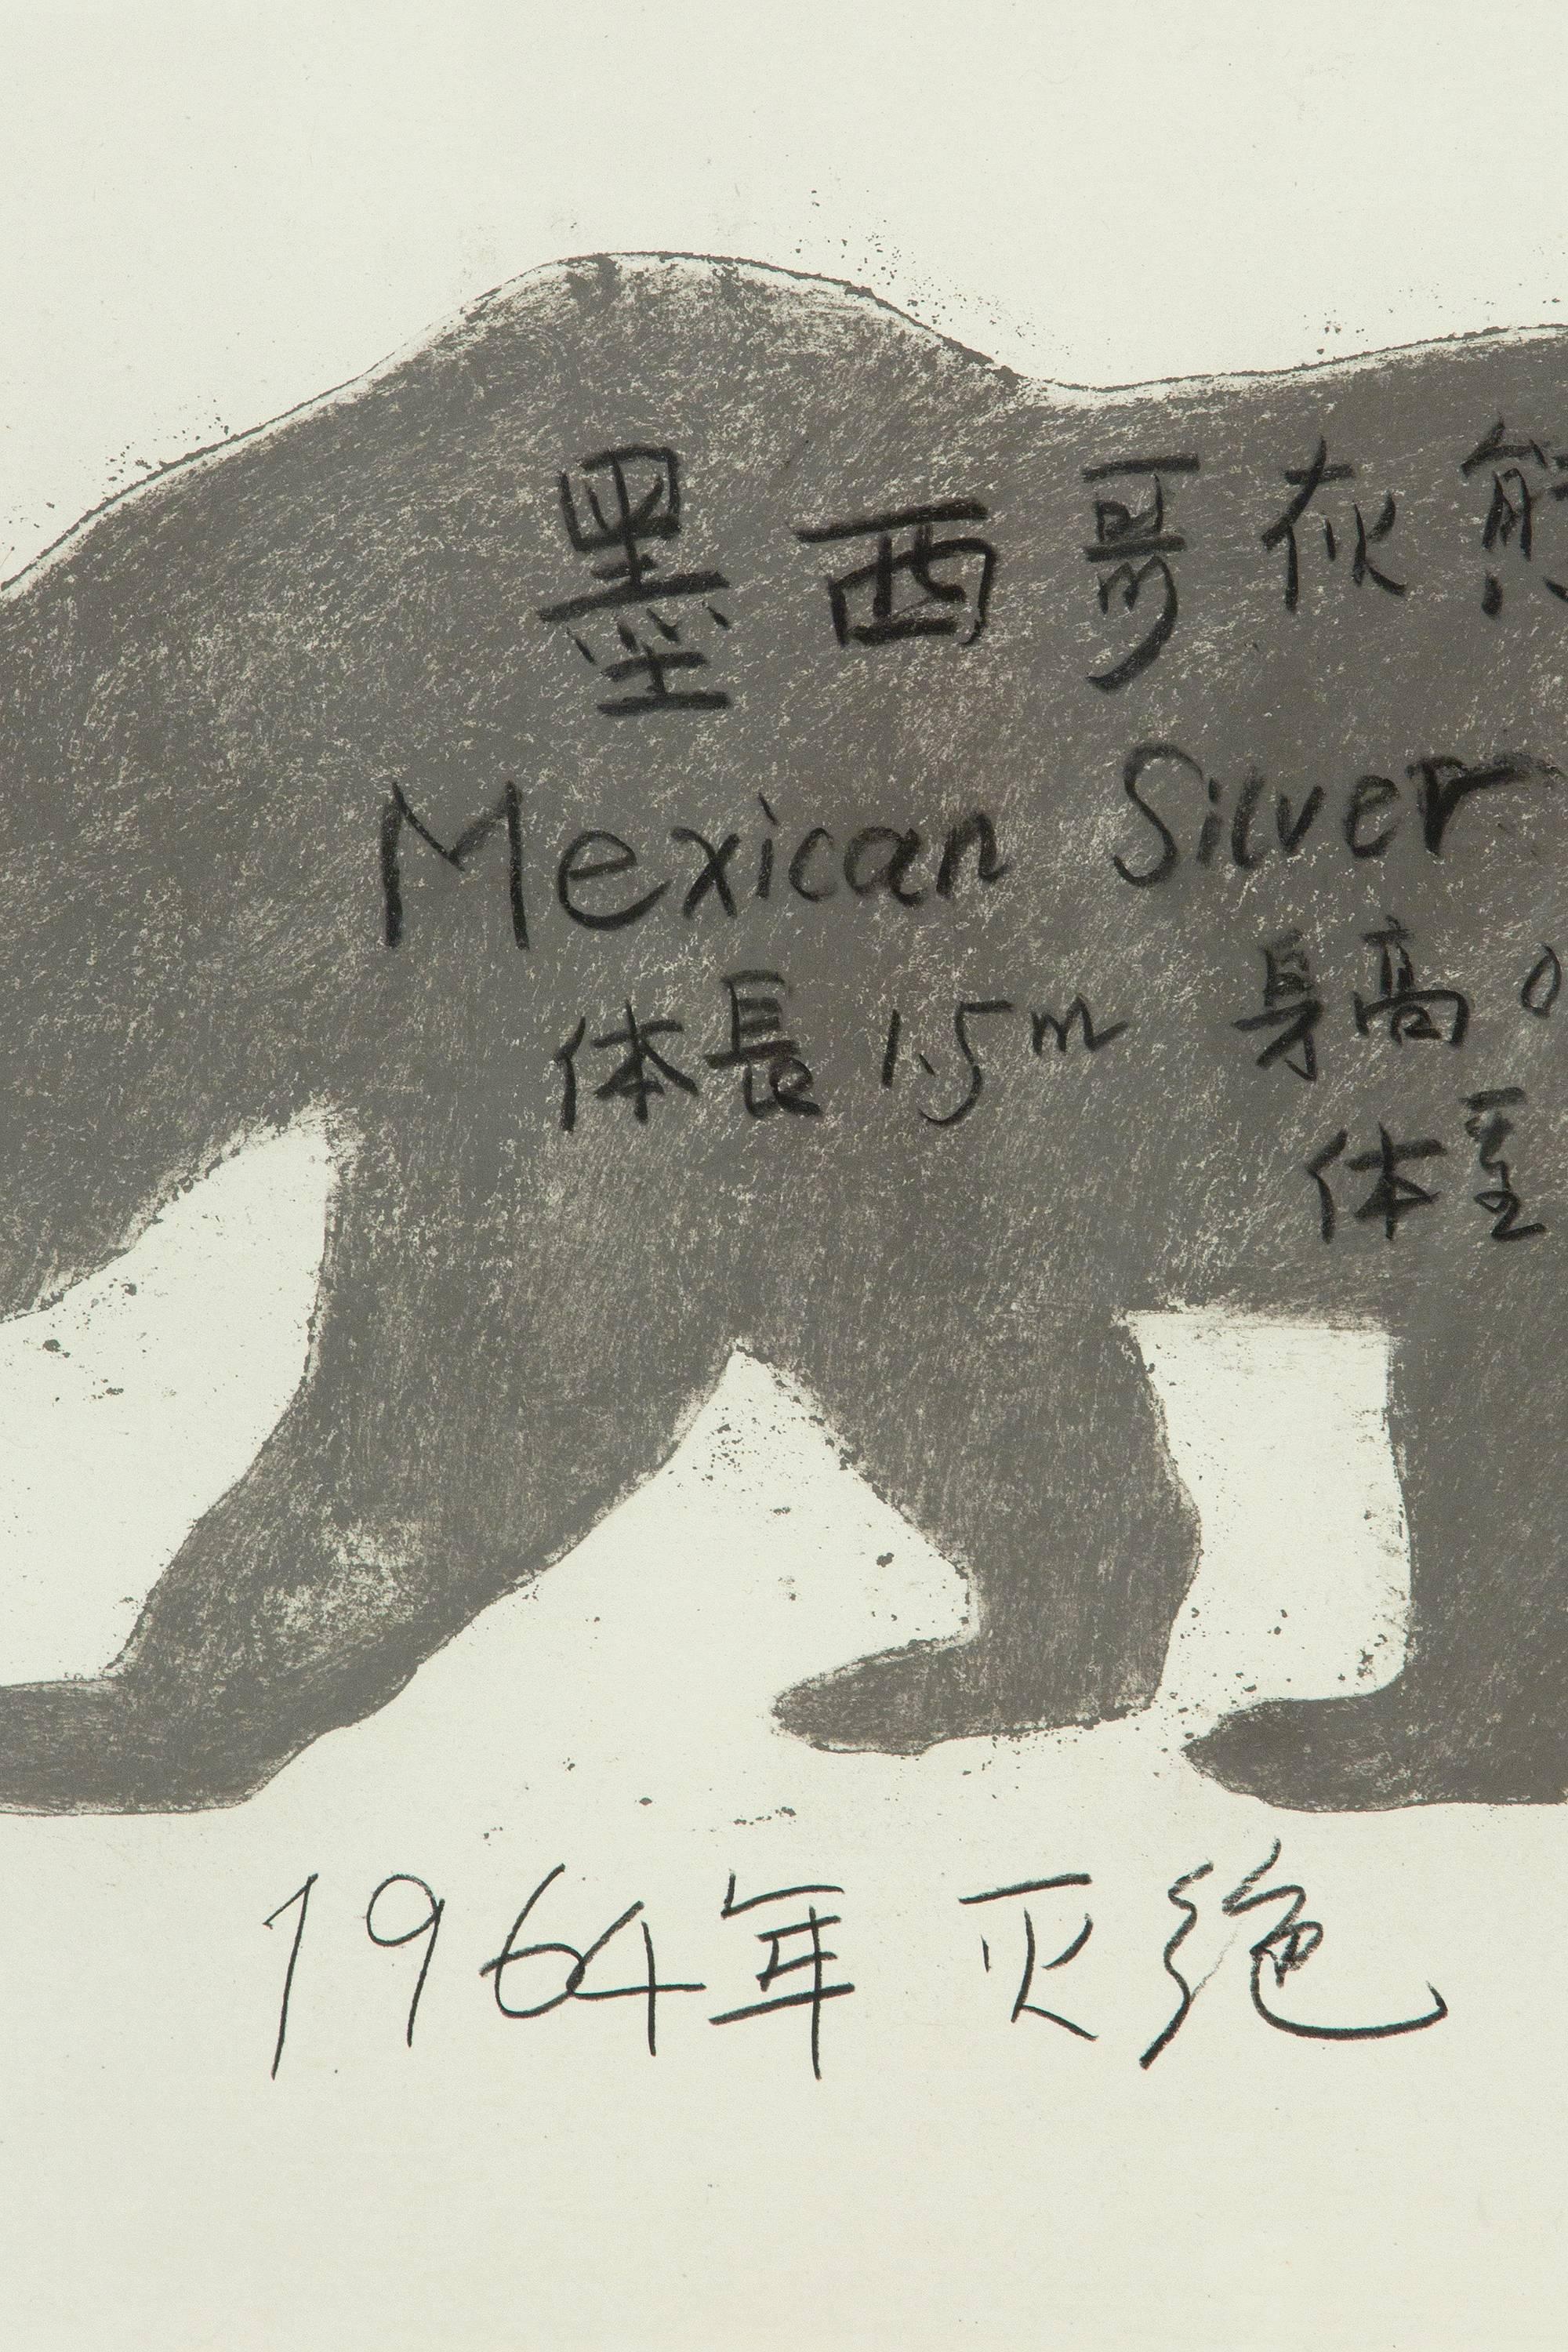 墨西哥灰熊
Mexican Silver
体長 1.5m 身高 0
体重
1964年 灭绝